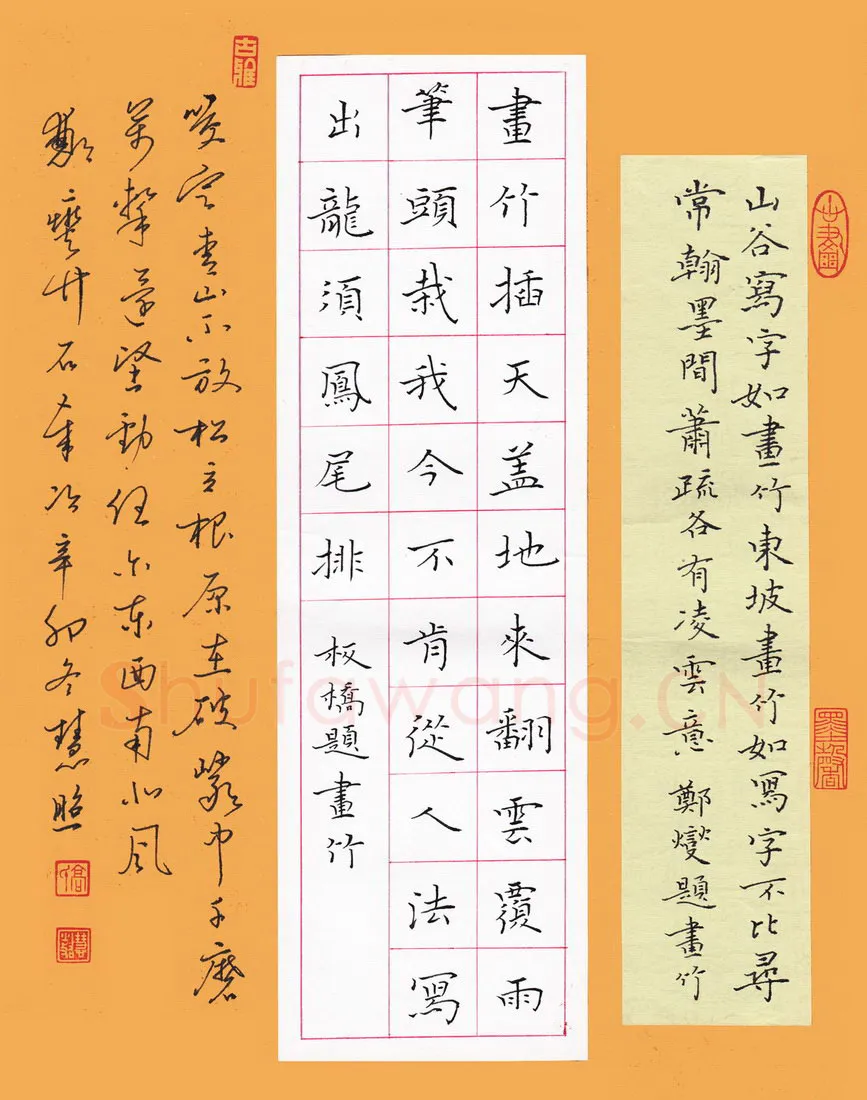 山谷寫字如畫竹東坡畫竹如冩字不比尋
常翰墨間蕭疏各有凌雲意鄭燮題畫竹
畫竹插天盖地來翻雲覆雨
筆頭栽我今不肯從人法冩
出龍須鳳尾排
板橋題畫竹
古雅
咬定青山不放松立根原在破巖中千磨
萬擊還堅勁任尔東西南北風
鄭燮竹石辛卯冬慧照
Shufawang.CN